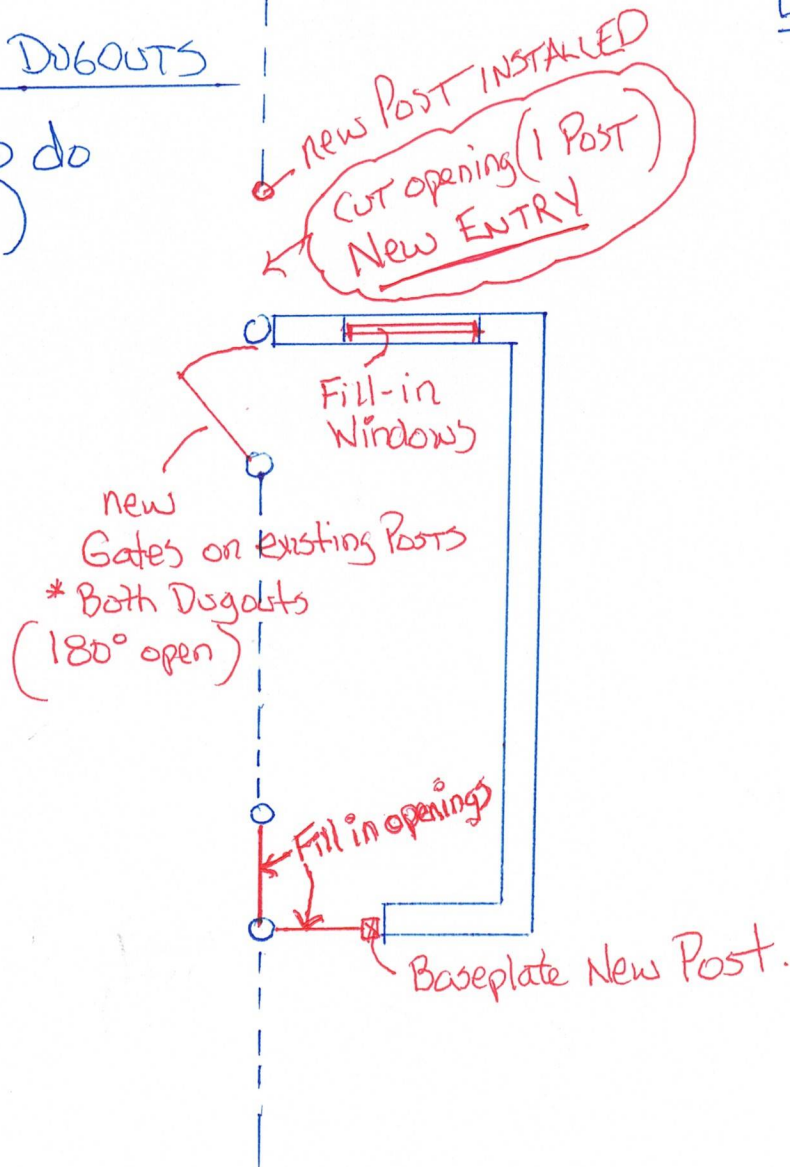 DUGOUTS
do
new Post INSTALLED
CUT opening (1 Post)
New ENTRY
Fill-in
Windows
new
Gates on existing Posts
* Both Dugouts
(180° open)
Fill in openings
Baseplate New Post.